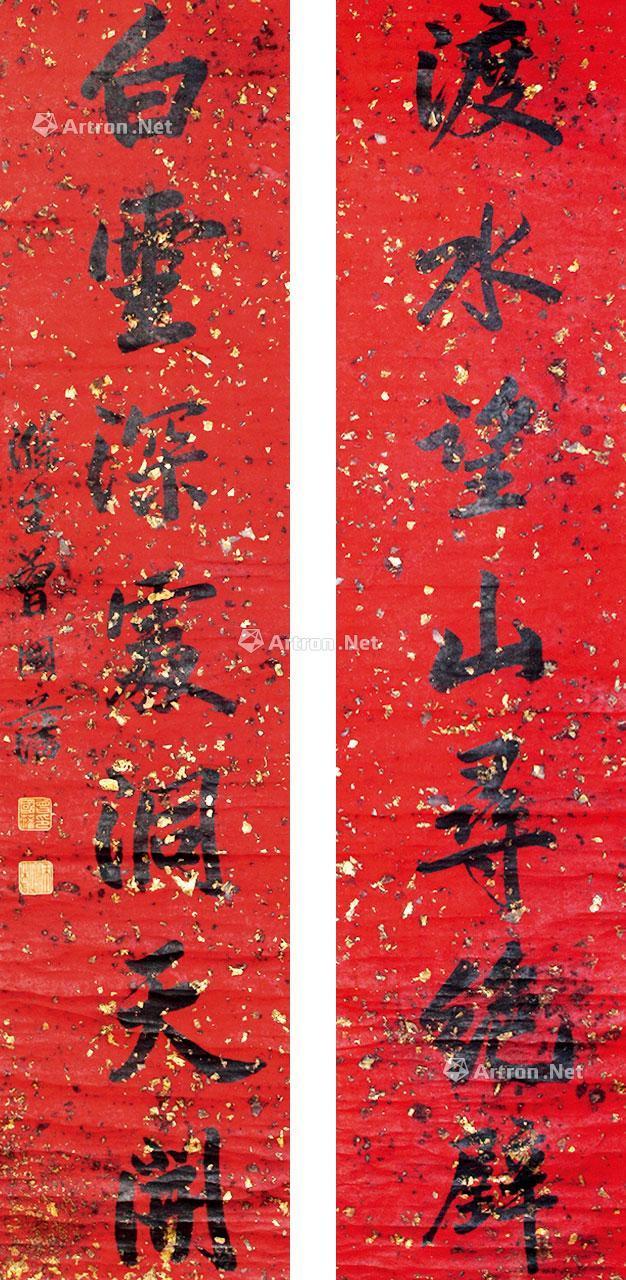 渡水望山尋絶壁
白雲深處洞天開
滌生曾國藩
Artron.Net
Artron.Net
Artron.Net